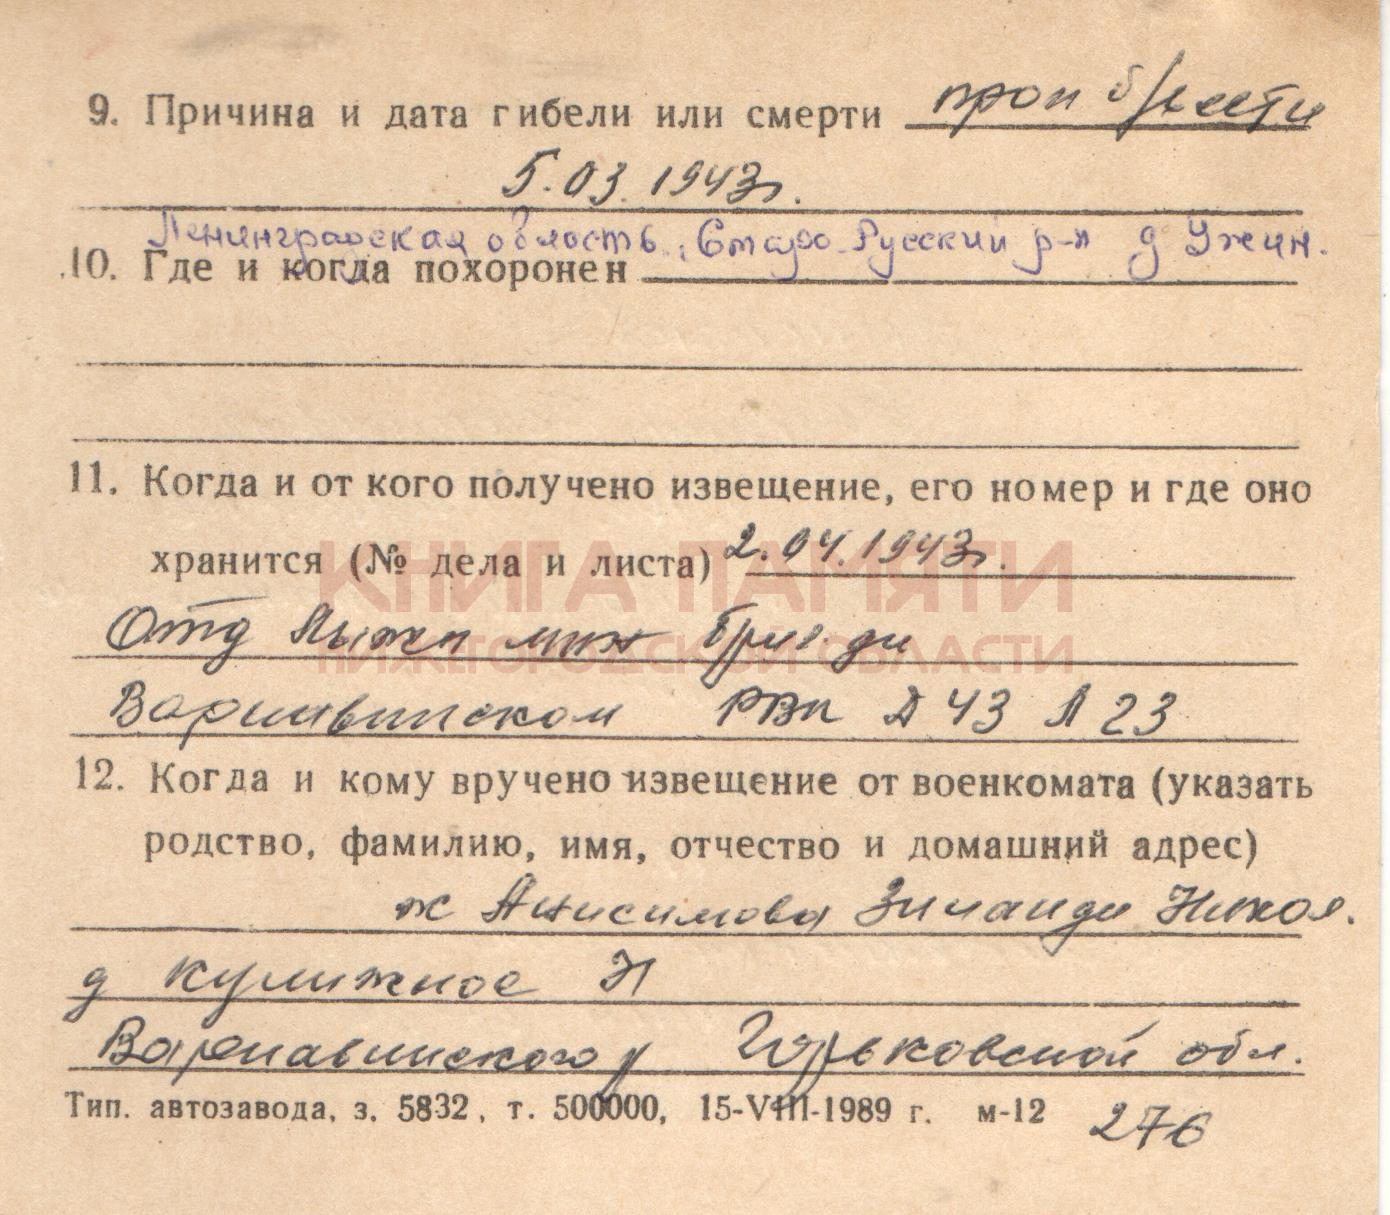 9. Причина и дата гибели или смерти проп б/вести
5.03.1943г.
Ленинградская область, Старо-Русский р-н д Ужин.
10. Где и когда похоронен
11. Когда и от кого получено извещение, его номер и где оно
хранится (№ дела и листа) 2.04.1943г.
КНИГА ПАМЯТИ
Отд лыжн бригады
НИЖЕГОРОДСКОЙ ОБЛАСТИ
Варнавинском РВК Д 43 Л 23
12. Когда и кому вручено извещение от военкомата (указать
родство, фамилию, имя, отчество и домашний адрес)
ж Анисимова Зинаида Никол.
д Кулижное Н
Варнавинского р Горьковской обл.
Тип. автозавода, з. 5832, т. 500000, 15-VIII-1989 г. м-12
276